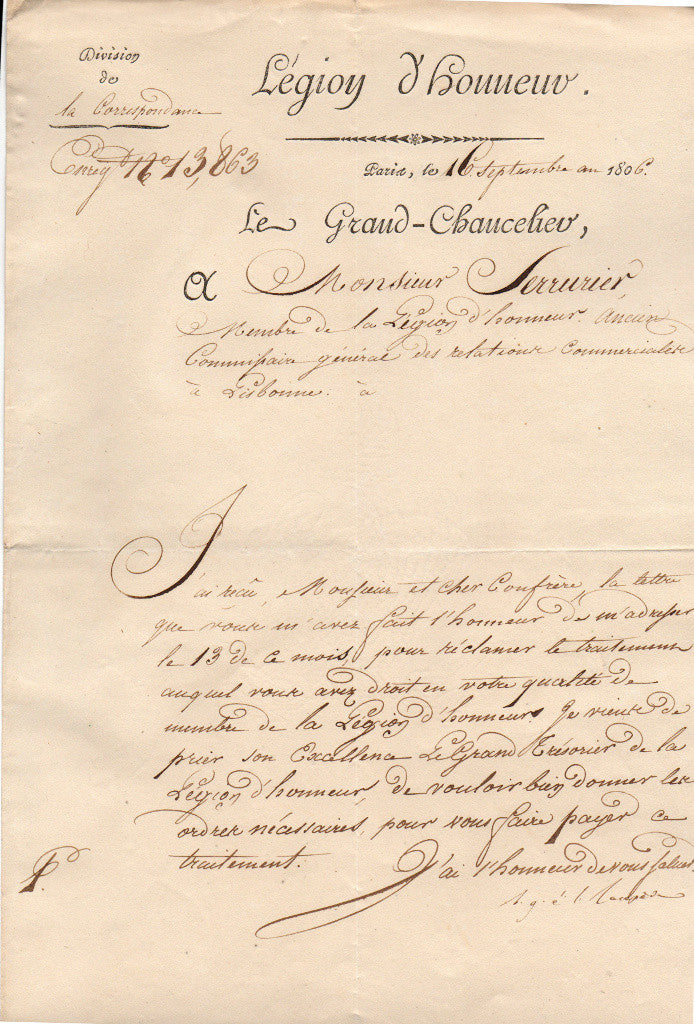 Division
de
la Correspondance
Légion d'honneur.
Enregd No 13,863
Paris, le 16 Septembre an 1806.
Le Grand-Chancelier,
A Monsieur Serrurier,
Membre de la Légion d'honneur. Ancien
Commissaire général des relations Commerciales
à Lisbonne. à
J'ai reçu, Monsieur et cher Confrère, la lettre
que vous m'avez fait l'honneur de m'adresser
le 13 de ce mois, pour réclamer le traitement
auquel vous avez droit en votre qualité de
membre de la Légion d'honneur. Je viens de
prier son Excellence Le Grand Trésorier de la
Légion d'honneur de vouloir bien donner les
ordres nécessaires, pour vous faire payer ce
traitement.
J'ai l'honneur de vous saluer.
P.